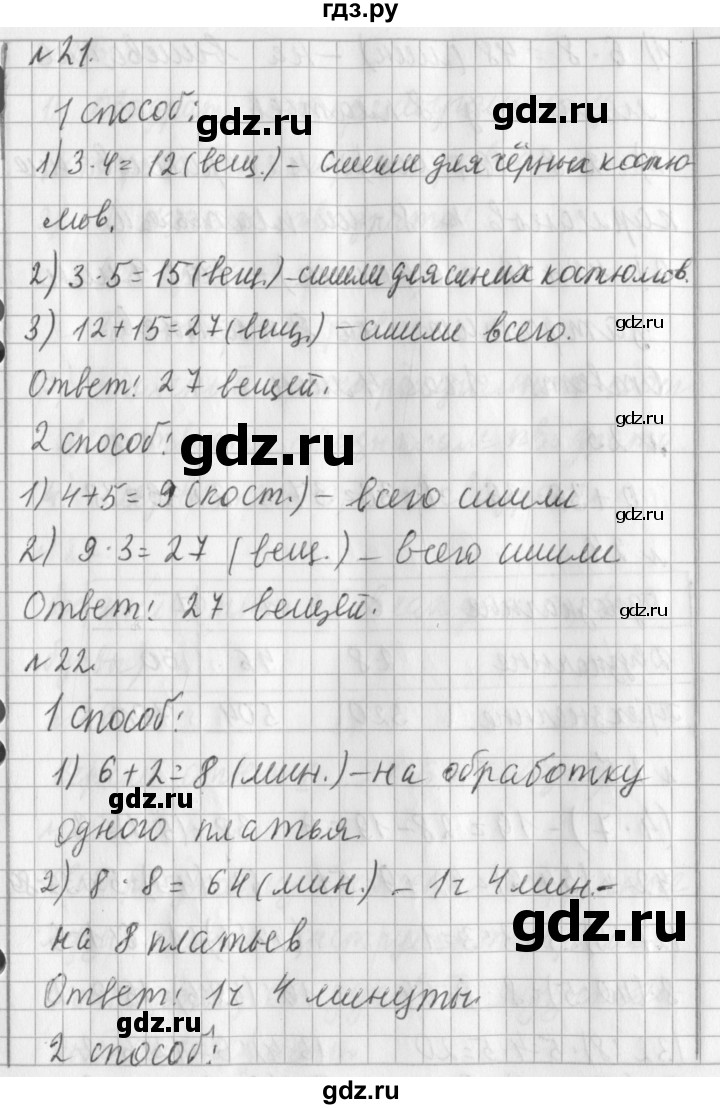 гдз.ру
№21.
1 способ:
gdz.ru gdz.ru
1) 3·4=12(вещ.) – сшили для чёрных костю-
мов.
2) 3·5=15(вещ.) – сшили для синих костюмов.
3) 12+15=27(вещ.) – сшили всего.
gdz.ru
Ответ: 27 вещей.
gdz.ru
2 способ:
gdz.ru
1) 4+5=9(кост.) – всего сшили
gdz.ru
2) 9·3=27 (вещ.) – всего сшили
Ответ: 27 вещей.
gdz.ru
№22.
1 способ:
1) 6+2=8 (мин.) – на обработку
gdz.ru
одного платья
2) 8·8=64(мин.) – 1ч 4мин.–
gdz.ru
на 8 платьев
Ответ: 1ч 4 минуты.
gdz.ru
2 способ:
gdz.ru